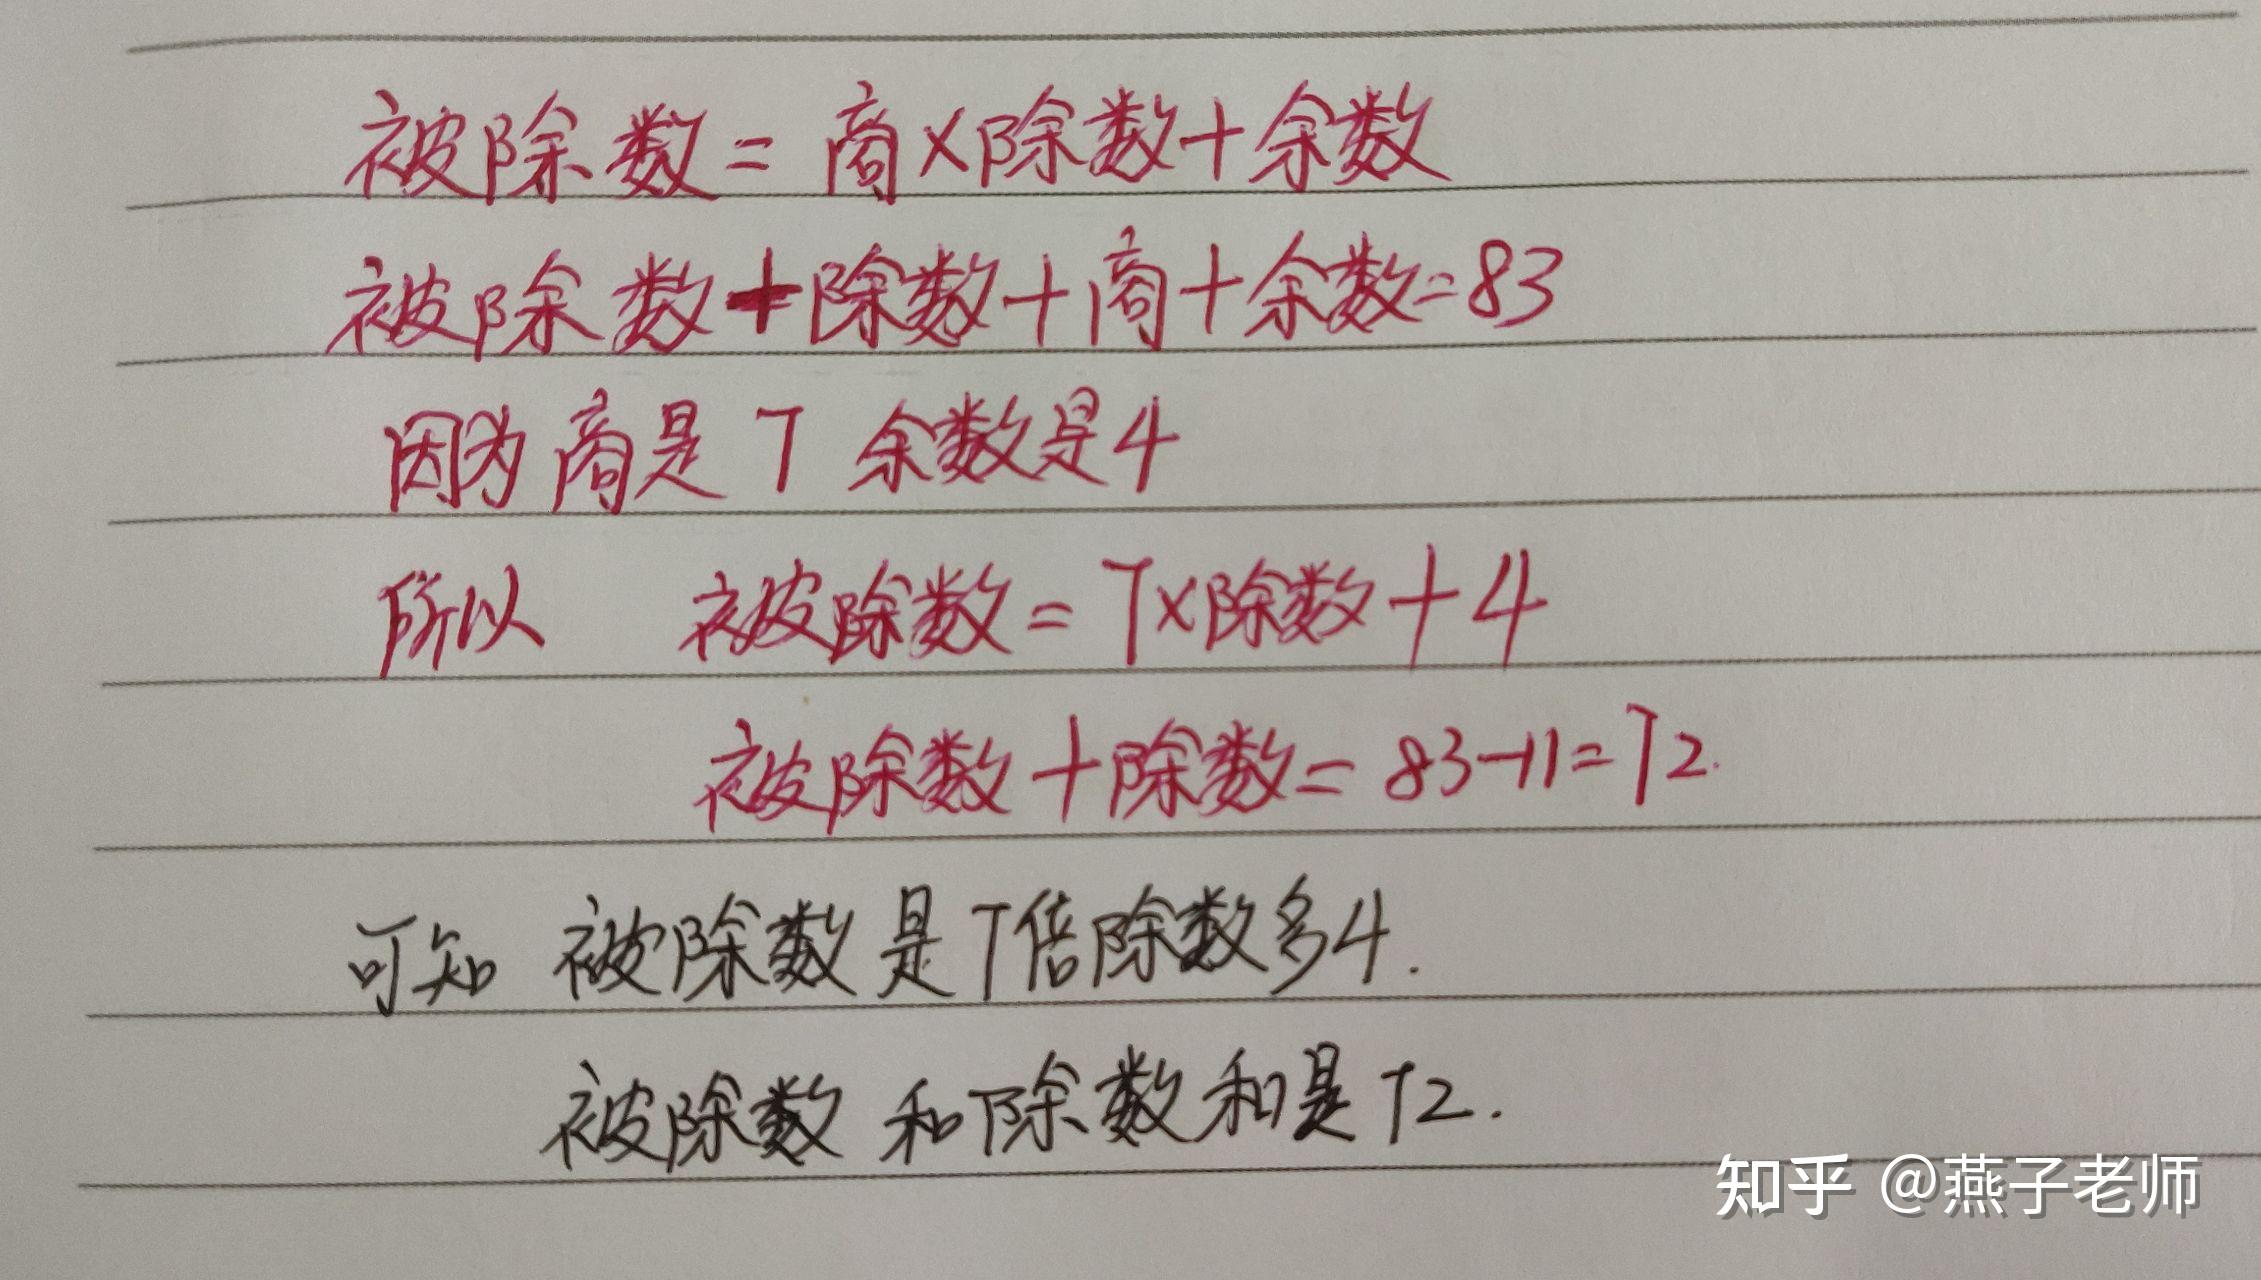 被除数=商×除数+余数
被除数+除数+商+余数=83
因为商是7 余数是4
所以 被除数=7×除数+4
被除数+除数=83-11=72.
可知 被除数是7倍除数多4.
被除数和除数和是72.
知乎 @燕子老师